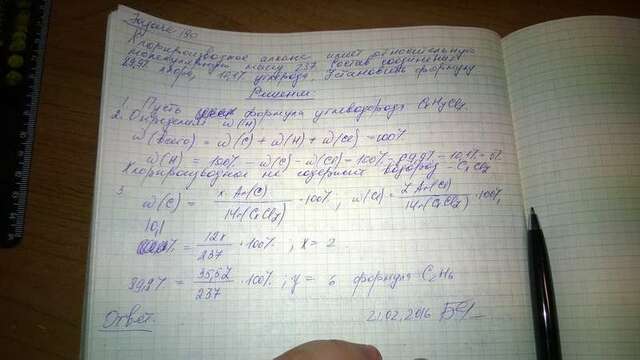 Задача 180
Хлорпроизводное алкана имеет относительную
молекулярную массу 237. Состав соединения
89,9% хлора, 10,1% углерода. Установить формулу
Решение:
1. Пусть формула углеводорода CxHyClz.
2. Определяем w(H)
w(всего) = w(C) + w(H) + w(Cl) = 100%
w(H) = 100% - w(C) - w(Cl) = 100% - 89,9% - 10,1% = 0%
Хлорпроизводное не содержит водород - CxClz
3. w(C) = x·Ar(C) / Mr(CxClz) · 100% ; w(Cl) = z·Ar(Cl) / Mr(CxClz) · 100%
10,1% = 12x / 237 · 100% ; x = 2
89,9% = 35,5z / 237 · 100% ; y = 6 формула C2H6
Ответ.
21.02.2016